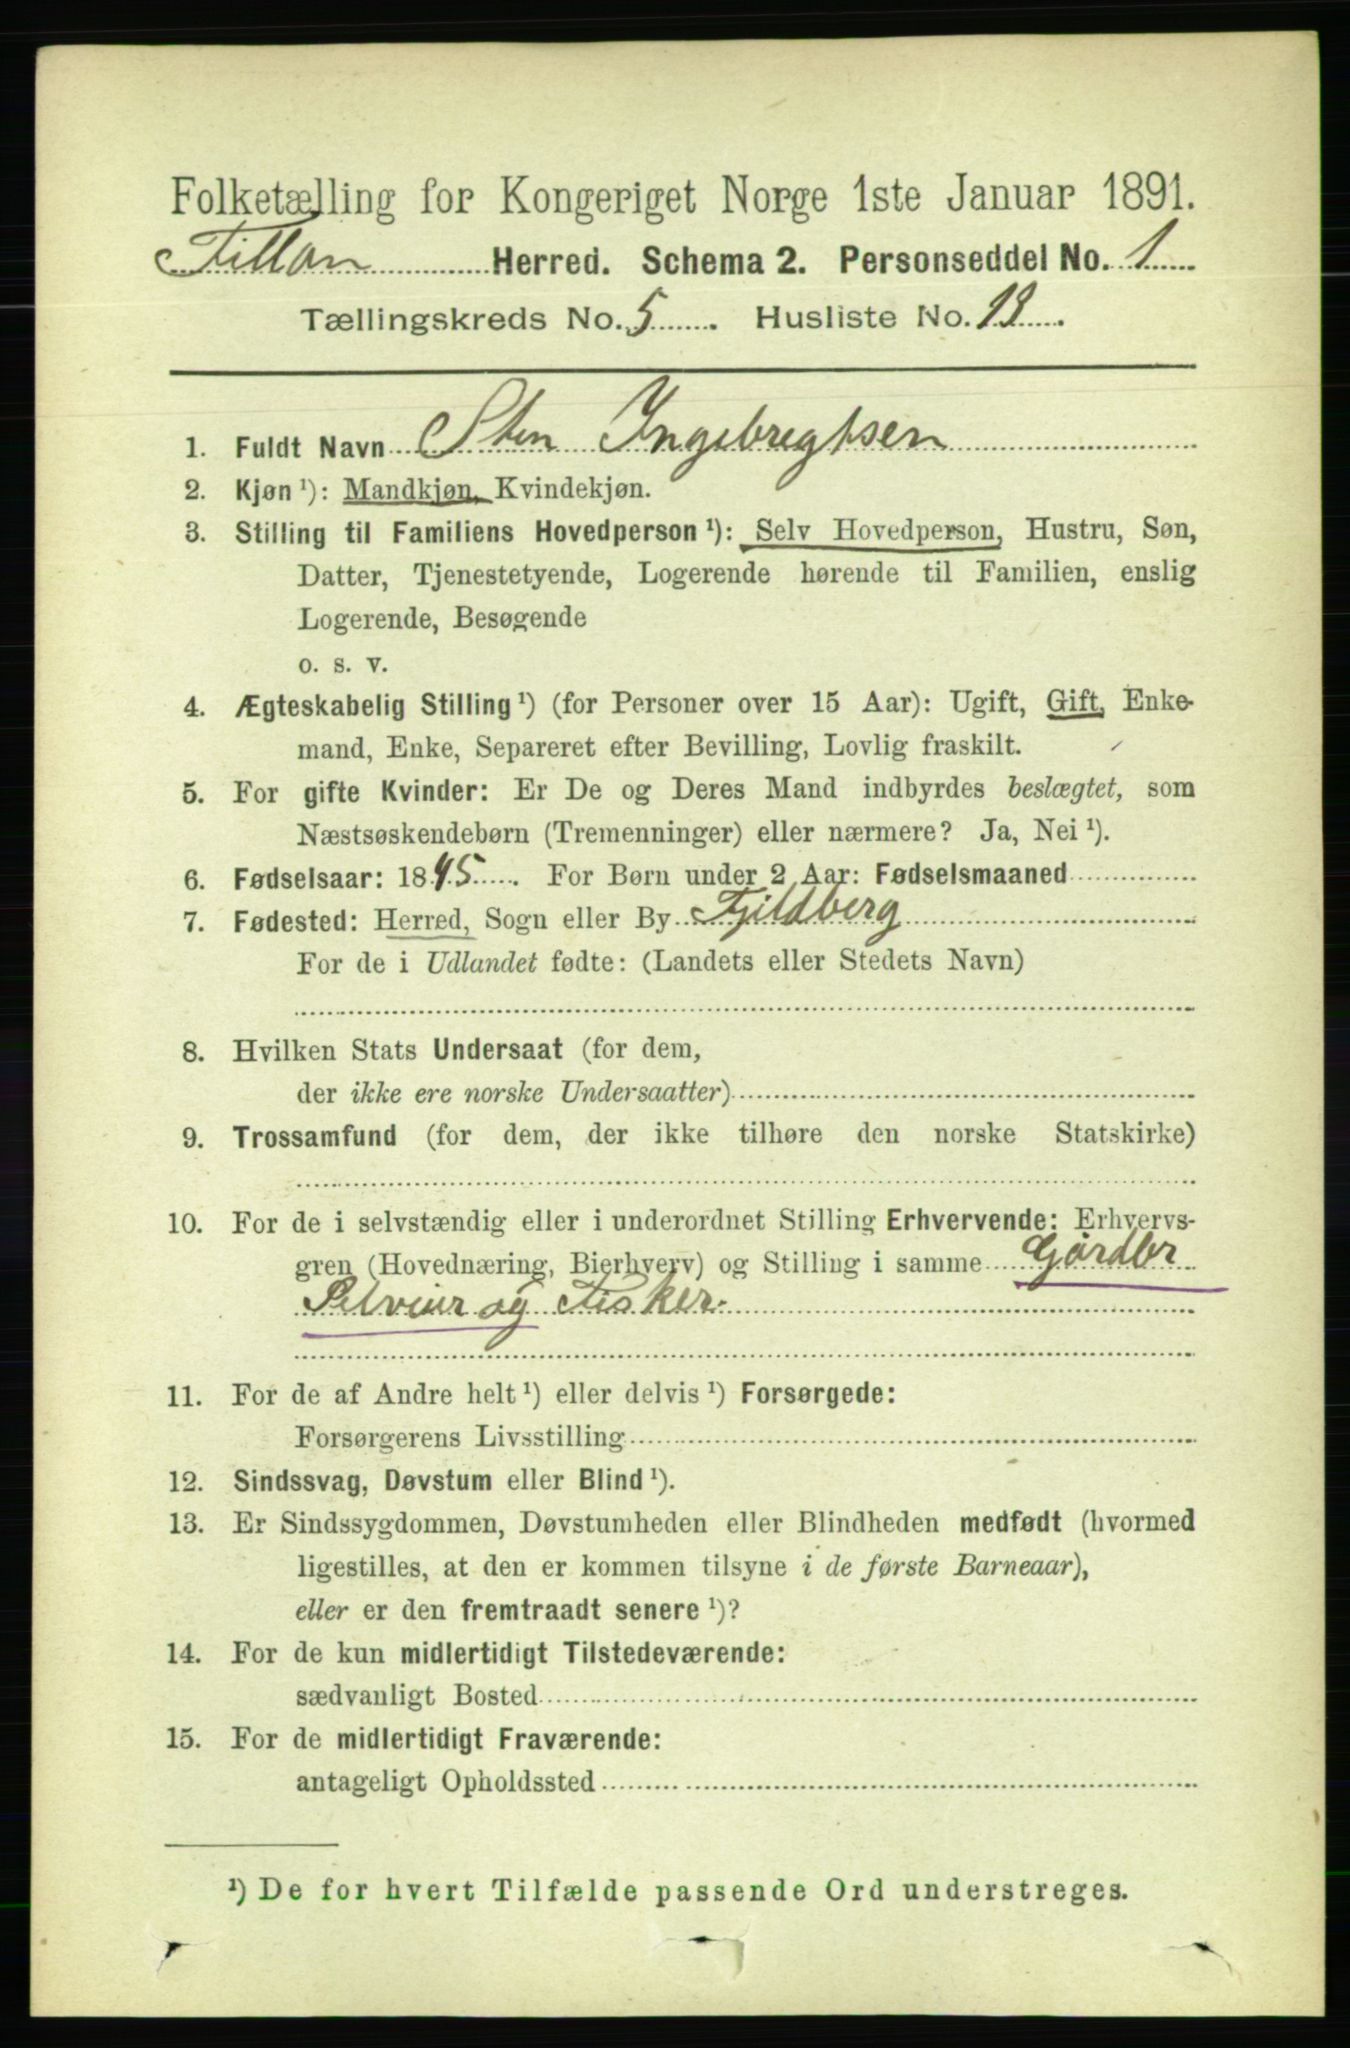 Folketælling for Kongeriget Norge 1ste Januar 1891.
Fillan Herred. Schema 2. Personseddel No. 1
Tællingskreds No. 5. Husliste No. 13.
1. Fuldt Navn Sten Ingebregtsen
2. Kjøn ¹): Mandkjøn, Kvindekjøn.
3. Stilling til Familiens Hovedperson ¹): Selv Hovedperson, Hustru, Søn,
Datter, Tjenestetyende, Logerende hørende til Familien, enslig
Logerende, Besøgende
o. s. v.
4. Ægteskabelig Stilling ¹) (for Personer over 15 Aar): Ugift, Gift, Enke-
mand, Enke, Separeret efter Bevilling, Lovlig fraskilt.
5. For gifte Kvinder: Er De og Deres Mand indbyrdes beslægtet, som
Næstsøskendebørn (Tremenninger) eller nærmere? Ja, Nei ¹).
6. Fødselsaar: 1845. For Børn under 2 Aar: Fødselsmaaned
7. Fødested: Herred, Sogn eller By Fjeldberg
For de i Udlandet fødte: (Landets eller Stedets Navn)
8. Hvilken Stats Undersaat (for dem,
der ikke ere norske Undersaatter)
9. Trossamfund (for dem, der ikke tilhøre den norske Statskirke)
10. For de i selvstændig eller i underordnet Stilling Erhvervende: Erhvervs-
gren (Hovednæring, Bierhverv) og Stilling i samme Gårdbr
Selveier og Fisker.
11. For de af Andre helt ¹) eller delvis ¹) Forsørgede:
Forsørgerens Livsstilling
12. Sindssvag, Døvstum eller Blind ¹).
13. Er Sindssygdommen, Døvstumheden eller Blindheden medfødt (hvormed
ligestilles, at den er kommen tilsyne i de første Barneaar),
eller er den fremtraadt senere ¹)?
14. For de kun midlertidigt Tilstedeværende:
sædvanligt Bosted
15. For de midlertidigt Fraværende:
antageligt Opholdssted
¹) De for hvert Tilfælde passende Ord understreges.